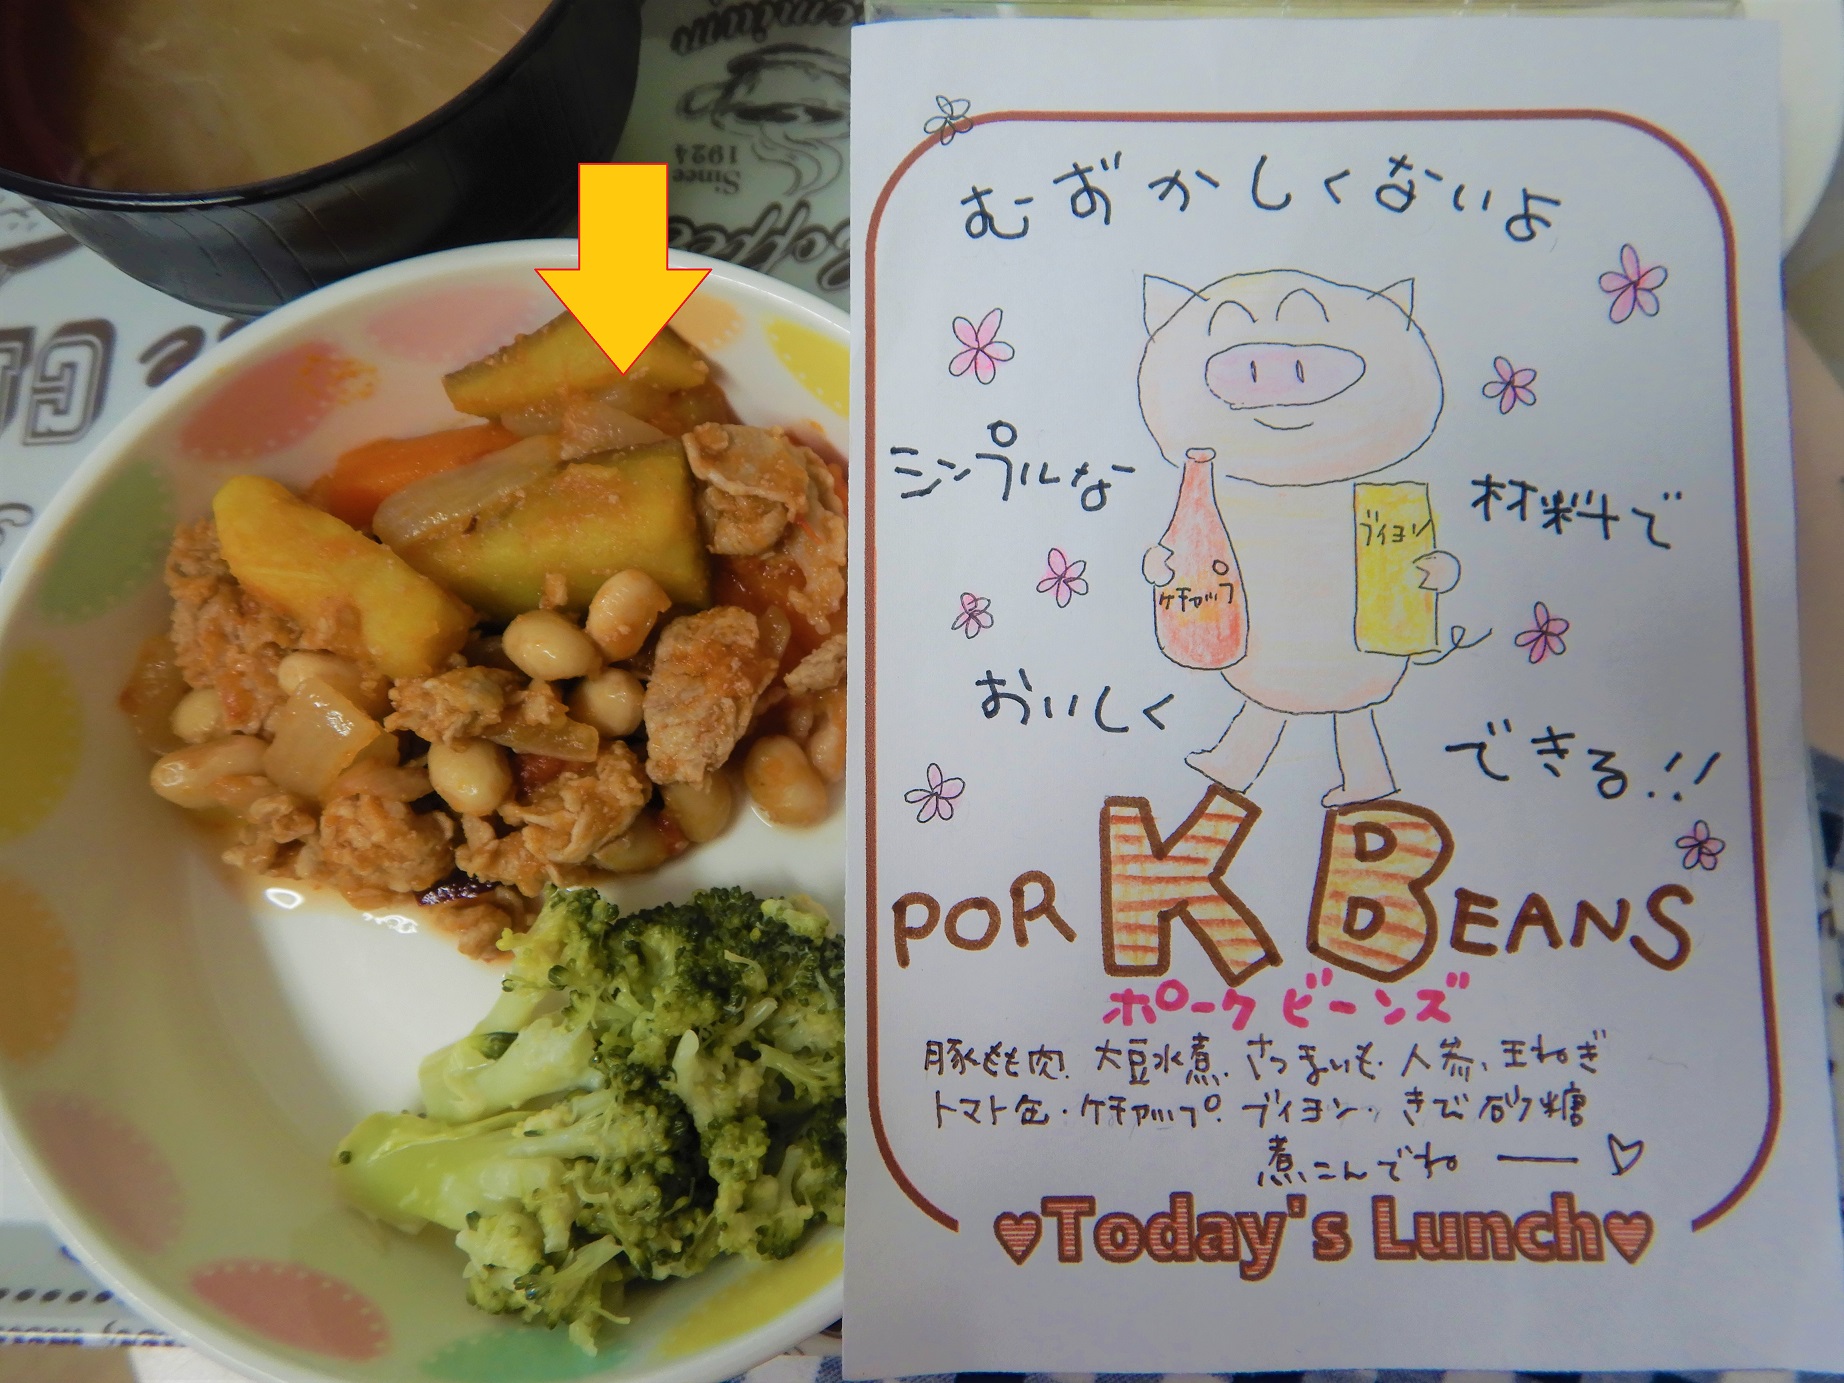 Since
1924
Coffee
むずかしくないよ
シンプルな
材料で
ケチャップ
ブイヨン
おいしく
できる!!
PORK BEANS
ポークビーンズ
豚もも肉、大豆水煮、さつまいも、人参、玉ねぎ
トマト缶・ケチャップ・ブイヨン・きび砂糖
煮こんでね ー♡
♥Today's Lunch♥